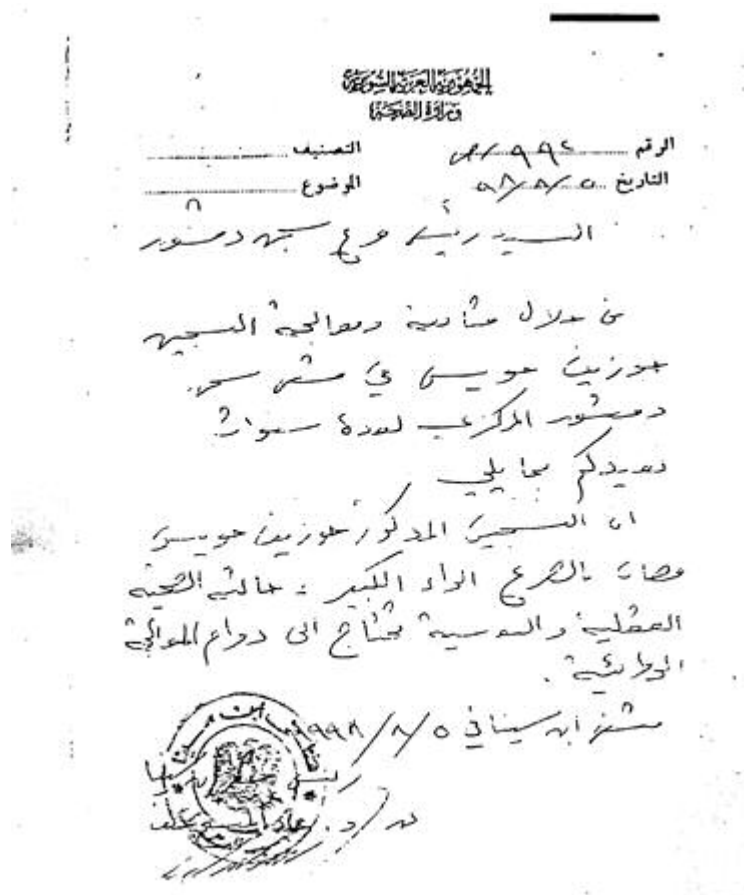 الجمهورية العربية السورية
وزارة الصحة
الرقم ٩٩٢/ص التصنيف
التاريخ ٩٨/٨/٥ الموضوع
السيد رئيس فرع سجن دمشق
من خلال مشاهدة ومعالجة السجين
جوزيف حويس في مشفى سجن
دمشق المركزي لعدة سنوات
نفيدكم بما يلي
ان السجين المذكور جوزيف حويس
مصاب بالصرع الداء الكبير حالته الصحية
العقلية والنفسية تحتاج الى دوام المعالجة
الدوائية .
مشفى ابن سينا في ١٩٩٨/٨/٥